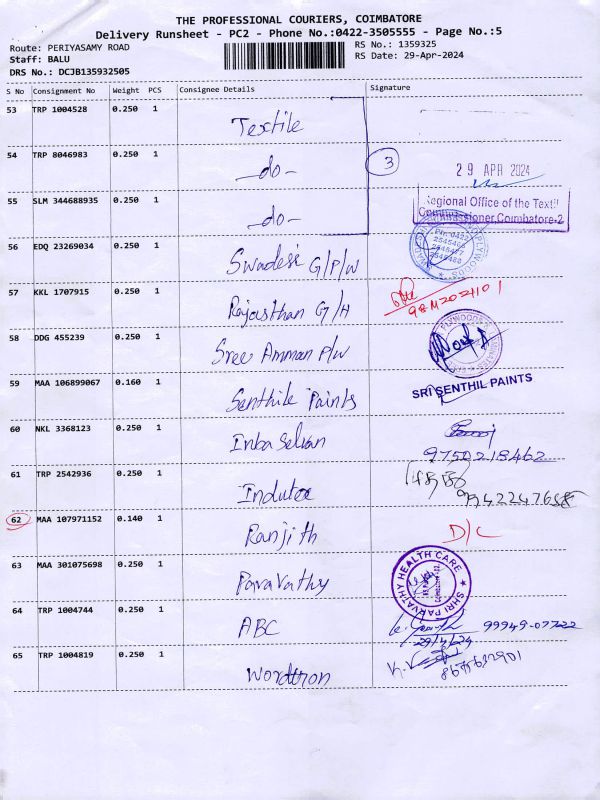 THE PROFESSIONAL COURIERS, COIMBATORE
Delivery Runsheet - PC2 - Phone No.:0422-3505555 - Page No.:5
Route: PERIYASAMY ROAD RS No.: 1359325
Staff: BALU RS Date: 29-Apr-2024
DRS No.: DCJB135932505
S No Consignment No Weight PCS Consignee Details Signature
53 TRP 1004528 0.250 1 Textile
54 TRP 8046983 0.250 1 -do- 3 29 APR 2024
55 SLM 344688935 0.250 1 -do- Regional Office of the Textil
Commissioner, Coimbatore-2
56 EDQ 23269034 0.250 1 Swadesi G/P/W
57 KKL 1707915 0.250 1 Rajasthan G/H
58 DDG 455239 0.250 1 Sree Amman P/W PLYWOODS
59 MAA 106899067 0.160 1 Senthil Paints SRI SENTHIL PAINTS
60 NKL 3368123 0.250 1 Inba Selvan 9750218462
61 TRP 2542936 0.250 1
62 MAA 107971152 0.140 1 Ranjith D/C
63 MAA 301075698 0.250 1 Paravathy SHRI PARVATHY HEALTH CARE
64 TRP 1004744 0.250 1 ABC 99949-07722
29/4/24
65 TRP 1004819 0.250 1